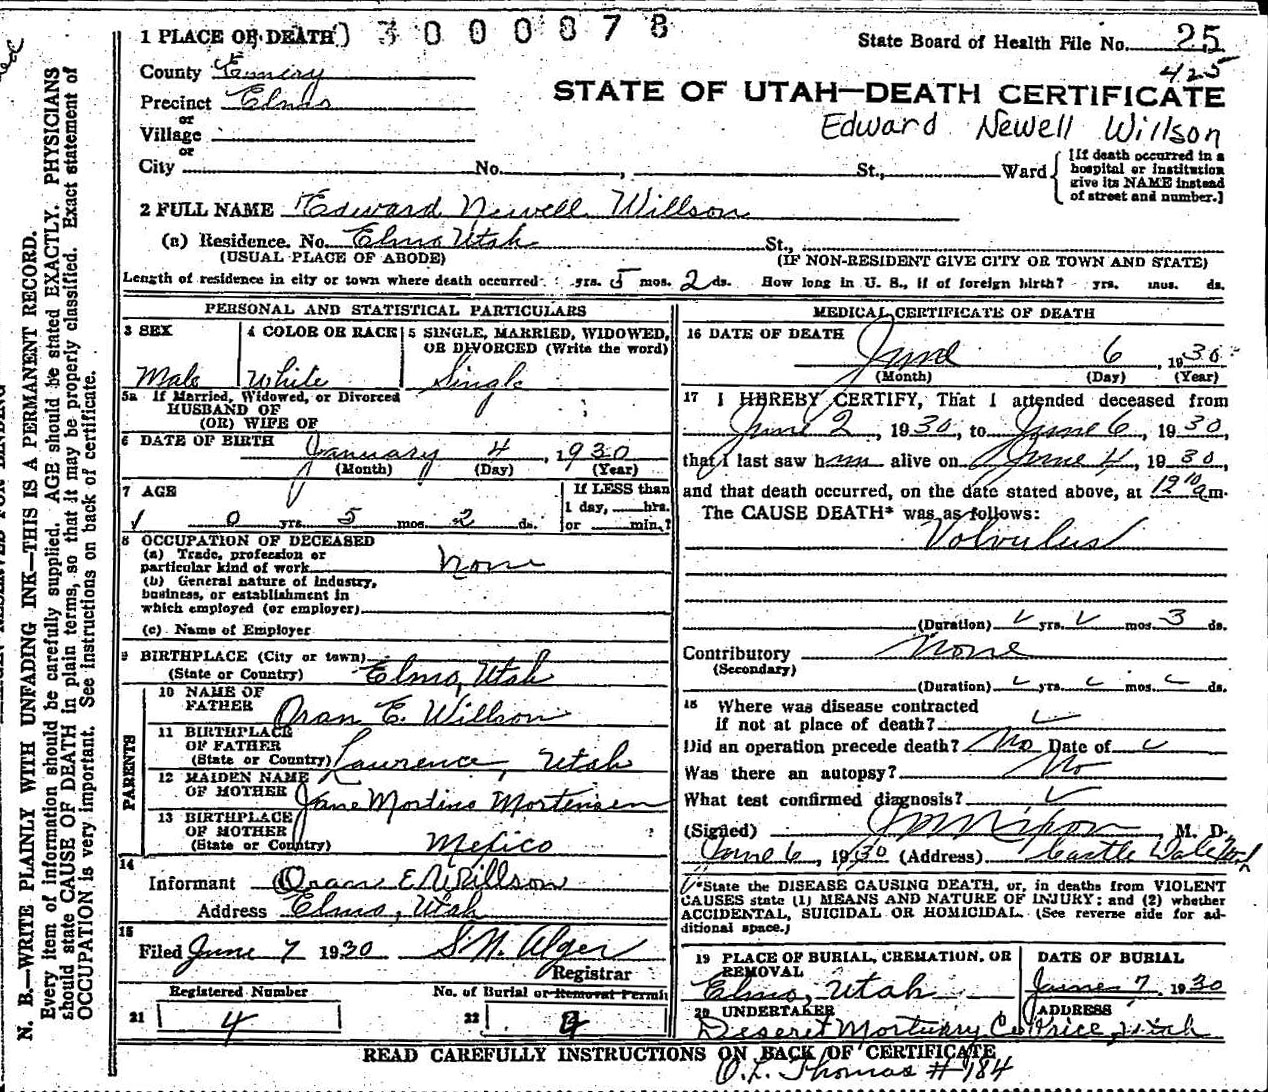 1 PLACE OF DEATH 03000878
State Board of Health File No. 25
425
County Emery
STATE OF UTAH—DEATH CERTIFICATE
Precinct Elmo
or
Edward Newell Willson
Village
or
City No. , St., Ward
[If death occurred in a
hospital or institution
give its NAME instead
of street and number.]
2 FULL NAME Edward Newell Willson
(a) Residence. No. Elmo Utah St.,
(USUAL PLACE OF ABODE) (IF NON-RESIDENT GIVE CITY OR TOWN AND STATE)
Length of residence in city or town where death occurred yrs. 5 mos. 2 ds. How long in U. S., if of foreign birth? yrs. mos. ds.
PERSONAL AND STATISTICAL PARTICULARS
3 SEX
Male
4 COLOR OR RACE
White
5 SINGLE, MARRIED, WIDOWED,
OR DIVORCED (Write the word)
Single
5a If Married, Widowed, or Divorced
HUSBAND OF
(OR) WIFE OF
6 DATE OF BIRTH January 4, 1930
(Month) (Day) (Year)
7 AGE
If LESS than
1 day, hrs.
or min.?
0 yrs. 5 mos. 2 ds.
8 OCCUPATION OF DECEASED
(a) Trade, profession or
particular kind of work none
(b) General nature of industry,
business, or establishment in
which employed (or employer)
(c) Name of Employer
9 BIRTHPLACE (City or town)
(State or Country) Elmo, Utah
PARENTS
10 NAME OF
FATHER Oran E. Willson
11 BIRTHPLACE
OF FATHER
(State or Country) Lawrence, Utah
12 MAIDEN NAME
OF MOTHER Jane Mortensen
13 BIRTHPLACE
OF MOTHER
(State or Country) Mexico
14
Informant Oran E Willson
Address Elmo, Utah
15
Filed June 7 1930 S. N. Alger
Registrar
Registered Number No. of Burial or Removal Permit
21 4 22 4
MEDICAL CERTIFICATE OF DEATH
16 DATE OF DEATH
June 6 1930
(Month) (Day) (Year)
17 I HEREBY CERTIFY, That I attended deceased from
June 2, 1930, to June 6, 1930,
that I last saw him alive on June 4, 1930,
and that death occurred, on the date stated above, at 12 10 am.
The CAUSE DEATH* was as follows:
Volvulus
(Duration) yrs. mos. 3 ds.
Contributory None
(Secondary)
(Duration) yrs. mos. ds.
18 Where was disease contracted
if not at place of death?
Did an operation precede death? No Date of
Was there an autopsy? No
What test confirmed diagnosis?
(Signed) Nixon, M. D.
June 6, 1930 (Address) Castle Dale Utah
*State the DISEASE CAUSING DEATH, or, in deaths from VIOLENT
CAUSES state (1) MEANS AND NATURE OF INJURY; and (2) whether
ACCIDENTAL, SUICIDAL OR HOMICIDAL. (See reverse side for ad-
ditional space.)
19 PLACE OF BURIAL, CREMATION, OR
REMOVAL
Elmo, Utah
DATE OF BURIAL
June 7 1930
20 UNDERTAKER
Deseret Mortuary Co
ADDRESS
Price, Utah
READ CAREFULLY INSTRUCTIONS ON BACK OF CERTIFICATE
O. L. Thomas # 184
N. B.—WRITE PLAINLY WITH UNFADING INK—THIS IS A PERMANENT RECORD.
Every item of information should be carefully supplied. AGE should be stated EXACTLY. PHYSICIANS
should state CAUSE OF DEATH in plain terms, so that it may be properly classified. Exact statement of
OCCUPATION is very important. See instructions on back of certificate.